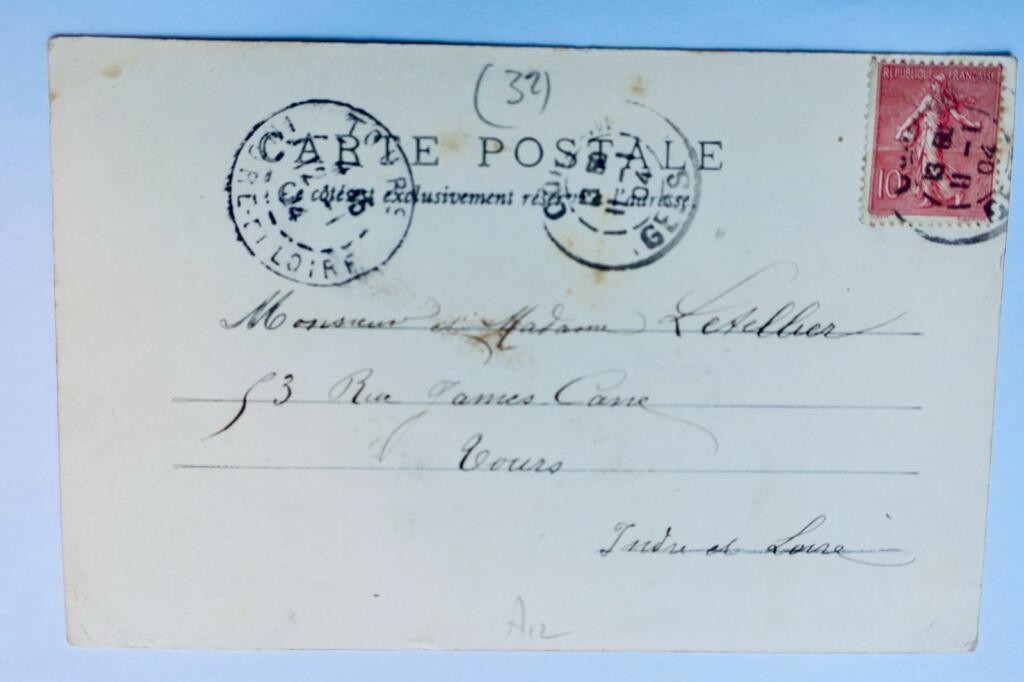 (32)
RÉPUBLIQUE FRANÇAISE
10
CARTE POSTALE
Ce côté est exclusivement réservé à l'adresse.
TOURS
INDRE-ET-LOIRE
GERS
13
11 -1
04
Monsieur et Madame Letellier
53 Rue James Cane
Tours
Indre et Loire
A12